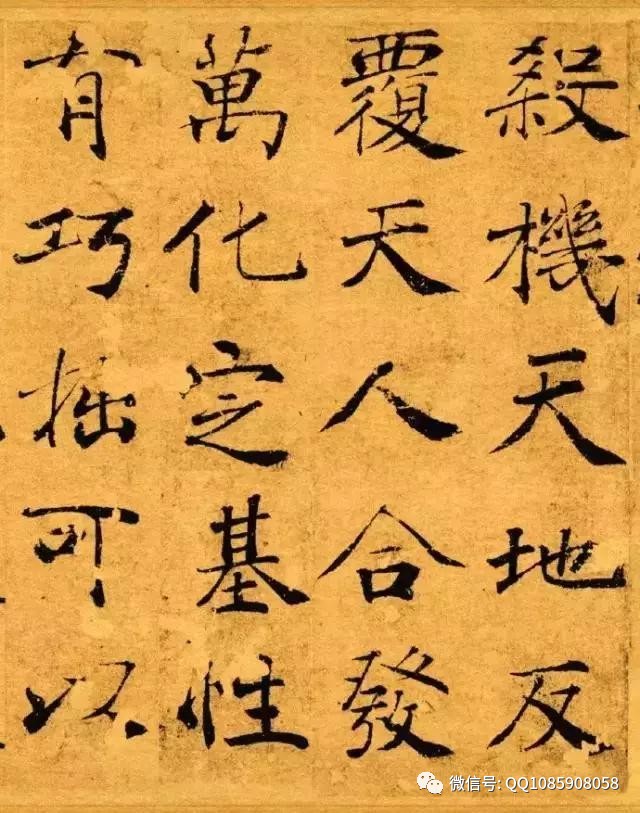 殺機天地反
覆天人合發
萬化定基性
有巧拙可以
微信号: QQ1085908058